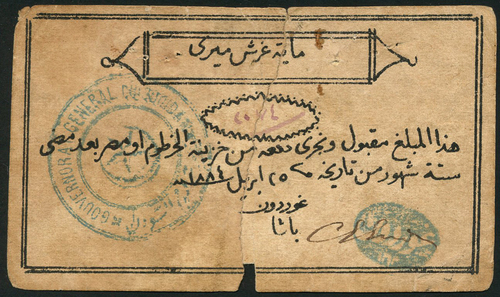 ماية غرش ميرى
هذا المبلغ مقبول ويجرى دفعه من خزينة الخرطوم او مصر بعد مضى
ستة شهور من تاريخه ٢٥ ابريل ١٨٨٤
غوردون
باشا
GOUVERNORAT GENERAL DU SOUDAN